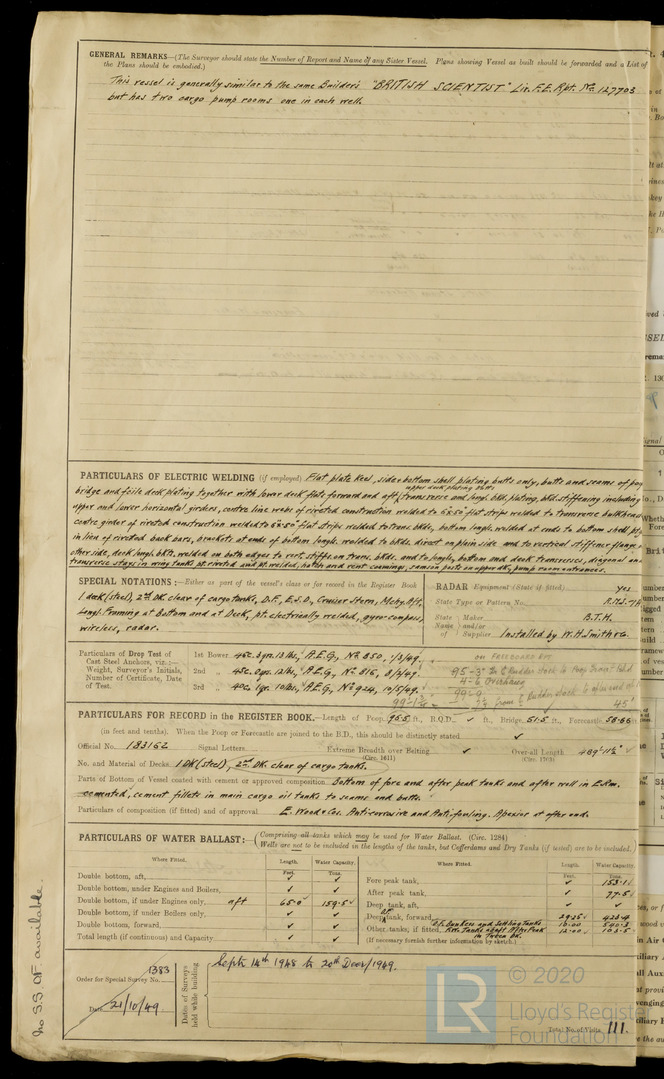 GENERAL REMARKS—(The Surveyor should state the Number of Report and Name of any Sister Vessel. Plans showing Vessel as built should be forwarded and a List of
the Plans should be embodied.)
This vessel is generally similar to the same Builder's "BRITISH SCIENTIST" Liv. F.E. Rpt. No. 127703
but has two cargo pump rooms one in each well.
PARTICULARS OF ELECTRIC WELDING (if employed) Flat plate keel, side & bottom shell plating butts only, butts and seams of poop
upper deck plating butts
bridge and fo'c'sle deck plating together with lower deck flats forward and aft, transverse and longl. bhd. plating, bhd. stiffening including
upper and lower horizontal girders, centre line webs of riveted construction welded to 6"x.50" flat strips welded to transverse bulkheads
centre girder of riveted construction welded to 6"x.50" flat strips welded to trans. bhds, bottom longls. welded at ends to bottom shell
in lieu of riveted back bars, brackets at ends of bottom longls. welded to bhds. direct on plain side and to vertical stiffener flange
other side, deck longl. bkts. welded on both edges to vert. stiffs. on trans. bhds. and to longls, bottom and deck transverses, diagonal and
transverse stays in wing tanks pt. riveted and pt. welded, hatch and vent coamings, samson posts on upper dk, pump room entrances.
SPECIAL NOTATIONS:—Either as part of the vessel's class or for record in the Register Book
1 deck (steel), 2nd DK. clear of cargo tanks, D.F., E.S.D., Cruiser Stern, Mchy. Aft,
Longl. Framing at Bottom and at Deck, pt. electrically welded, gyro-compass,
wireless, radar.
RADAR Equipment (State if fitted) Yes
State Type or Pattern No.
State Name of Maker B.T.H.
and/or
Supplier Installed by W. H. Smith & Co.
Particulars of Drop Test of
Cast Steel Anchors, viz.:—
Weight, Surveyor's Initials,
Number of Certificate, Date
of Test.
1st Bower 45c. 3qrs. 13 lbs, A.E.G., No. 850, 1/3/49.
2nd " 45c. 0qrs. 12 lbs, A.E.G., No. 816, 8/2/49.
3rd " 40c. 1qr. 10 lbs, A.E.G., No. 924, 10/5/49.
on FREEBOARD RPT
4-6 Overhang
99-9
PARTICULARS FOR RECORD in the REGISTER BOOK.—Length of Poop 96.5 ft., R.Q.D. ✓ ft., Bridge 51.5 ft., Forecastle 58.66 ft
(in feet and tenths). When the Poop or Forecastle are joined to the B.D., this should be distinctly stated ✓
Official No. 183162 Signal Letters Extreme Breadth over Belting ✓ Over-all Length 489'-11½" ✓
(Circ. 1611) (Circ. 1703)
No. and Material of Decks 1 DK (steel), 2nd DK. clear of cargo tanks.
Parts of Bottom of Vessel coated with cement or approved composition Bottom of fore and after peak tanks and after well in E.Rm.
cemented, cement fillets in main cargo oil tanks to seams and butts.
Particulars of composition (if fitted) and of approval E. Wood & Co. Anti-corrosive and Anti-fouling. Apexior at after end.
PARTICULARS OF WATER BALLAST:—(Comprising all tanks which may be used for Water Ballast. (Circ. 1284)
Wells are not to be included in the lengths of the tanks, but Cofferdams and Dry Tanks (if tested) are to be included.)
Where Fitted. Length. Water Capacity. Where Fitted. Length. Water Capacity.
Feet. Tons. Feet. Tons.
Double bottom, aft, ✓ ✓
Double bottom, under Engines and Boilers, ✓ ✓
Double bottom, if under Engines only, aft 65.0 ✓ 159.5 ✓
Double bottom, if under Boilers only, ✓ ✓
Double bottom, forward, ✓ ✓
Total length (if continuous) and Capacity ✓ ✓
Fore peak tank, ✓ 153.1
After peak tank, ✓ 77.5
Deep tank, aft, ✓ ✓
Deep tank, forward, 29.25 428.4
Other tanks, if fitted, O.F. Bunkers and Settling Tanks 10.00 540.3
F.W. Tanks adjt. After Peak 12.00 103.5
in Tween Dk.
(If necessary furnish further information by sketch.)
Order for Special Survey No. 1383
Date 21/10/49
Dates of Surveys
held while building
Septr. 14th 1948 to 20th Decr/1949.
Total No. of Visits 111.
No S.S. OF available
© 2020
Lloyd's Register
Foundation